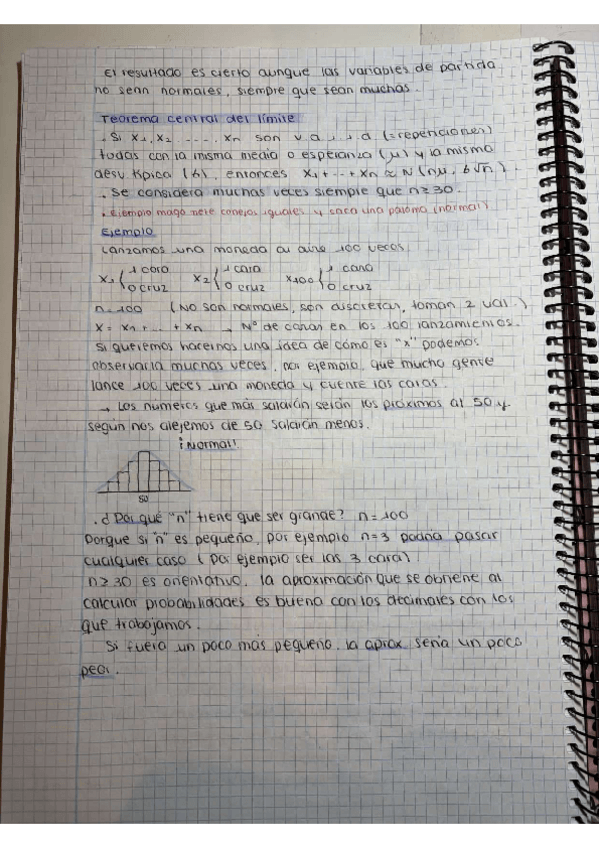 El resultado es cierto aunque las variables de partida
no sean normales, siempre que sean muchas.
Teorema central del límite
. Si x1, x2 ...... xn son v.a.i.i.d (=repeticiones)
todas con la misma media o esperanza (μ) y la misma
desv típica (6), entonces x1 + ... + xn ≈ N (nμ, 6√n).
. Se considera muchas veces siempre que n ≥ 30.
. Ejemplo mago mete conejos iguales y saca una paloma (normal)
Ejemplo
Lanzamos una moneda al aire 100 veces
x1 { 1 cara 0 cruz x2 { 1 cara 0 cruz x100 { 1 cara 0 cruz
n = 100 (No son normales, son discretas, toman 2 val.)
X = x1 + ... + xn → Nº de caras en los 100 lanzamientos.
Si queremos hacernos una idea de cómo es "x" podemos
observarla muchas veces, por ejemplo, que mucha gente
lance 100 veces una moneda y cuente las caras.
→ Los números que más saldrán serán los próximos al 50 y
según nos alejemos de 50 saldrán menos.
¡Normal!
50
. ¿Por qué "n" tiene que ser grande? n = 100
Porque si "n" es pequeño, por ejemplo n=3 podría pasar
cualquier caso (por ejemplo ser las 3 cara)
n ≥ 30 es orientativo, la aproximación que se obtiene al
calcular probabilidades es buena con los decimales con los
que trabajamos.
Si fuera un poco más pequeño, la aprox. sería un poco
peor.